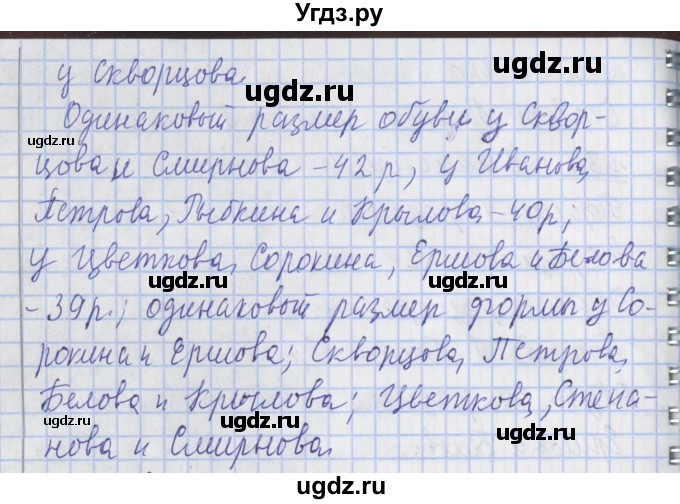 Угдз.ру
у Скворцова.
Одинаковый размер обуви у Сквор-
цова и Смирнова - 42 р, у Иванова,
Петрова, Рыбкина и Крылова - 40р;
у Цветкова, Сорокина, Ершова и Белова
- 39 р.; одинаковый размер формы у Со-
рокина и Ершова; Скворцова, Петрова,
Белова и Крылова; Цветкова, Степа-
нова и Смирнова.
ugdz.ru
ugdz.ru
ugdz.ru
ugdz.ru
ugdz.ru
ugdz.ru
ugdz.ru
ugdz.ru
ugdz.ru
ugdz.ru
ugdz.ru